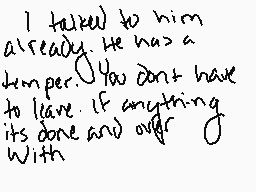 I talked to him
already. He has a
temper. You dont have
to leave. If anything
its done and over
with